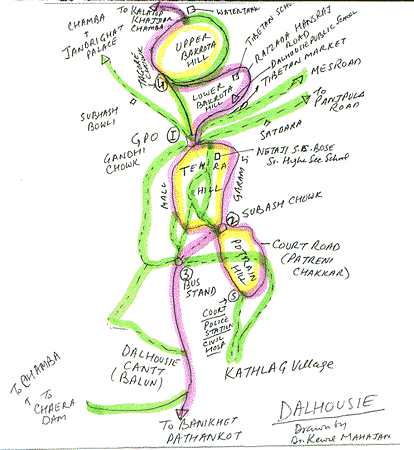 TO KALATOP
KHAJJIAR
CHAMBA
WATERTANK
TO
CHAMBA
JANDRIGHAT
PALACE
TIBETAN SCHOOL
RAIZADA HANSRAJ
ROAD
DALHOUSIE PUBLIC SCHOOL
TIBETAN MARKET
UPPER
BAKROTA
HILL
TAGORE
CHOWK
4
LOWER
BAKROTA
HILL
MES ROAD
TO
PANJPULA
ROAD
SUBHASH
BOWLI
SATDARA
GPO
1
GANDHI
CHOWK
NETAJI S.B. BOSE
Sr. Higher Sec School
TEHRA
HILL
MALL
GARAM S
2
SUBASH CHOWK
POTRAIN
HILL
COURT ROAD
(PATRENI
CHAKKAR)
3
BUS
STAND
5
COURT
POLICE
STATION
CIVIL
HOSP
DALHOUSIE
CANTT
(BALUN)
KATHLAG Village
TO CHAMBA
TO
CHAERA
DAM
TO BANIKHET
PATHANKOT
DALHOUSIE
Drawn by
Dr. Kewal MAHAJAN